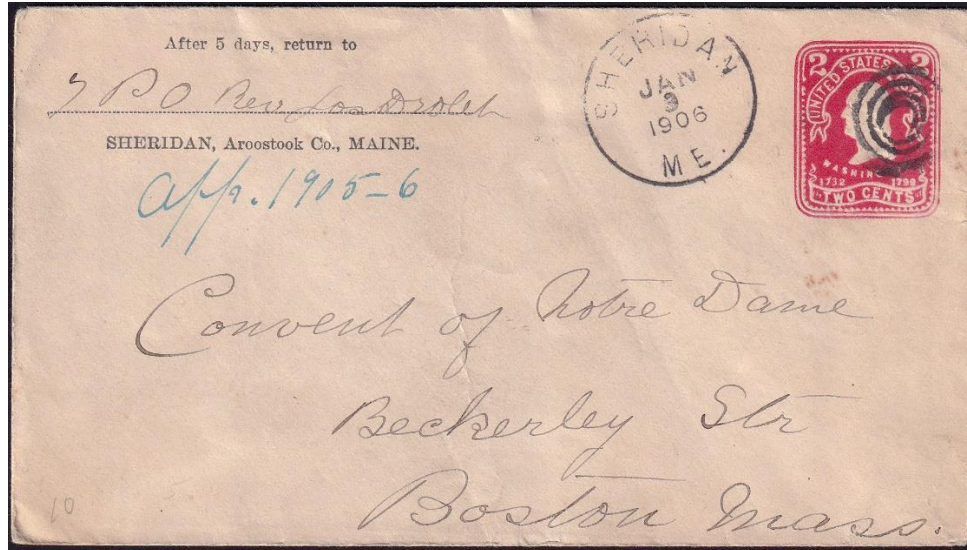 After 5 days, return to
P O Rev Jos Drolet
SHERIDAN, Aroostook Co., MAINE.
App. 1905-6
SHERIDAN
JAN
1906
ME.
2 2
UNITED STATES
WASHIN
1732 1799
TWO CENTS
Convent of Notre Dame
Beckerley Str
Boston Mass.
10